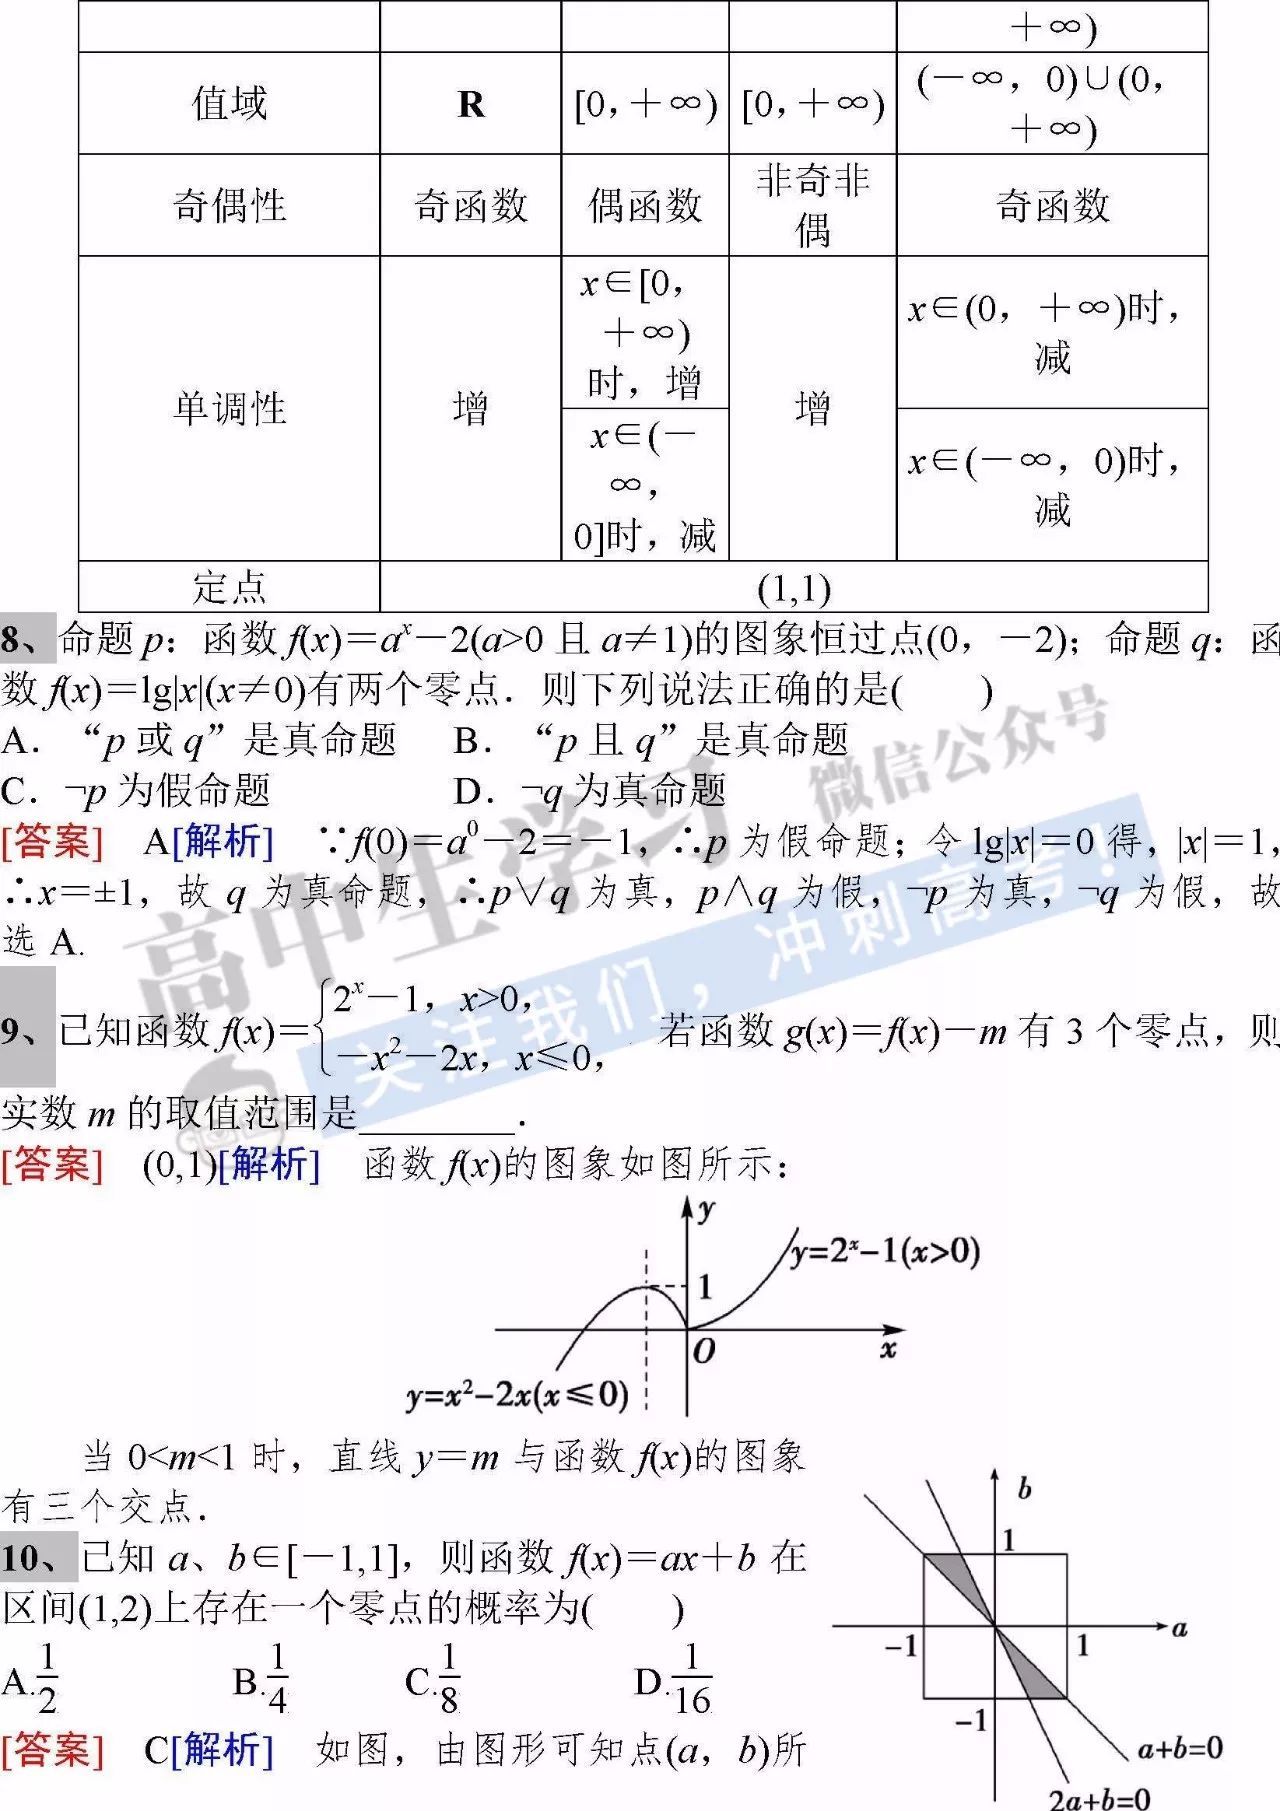 +∞)
值域 R [0,+∞) [0,+∞) (-∞,0)∪(0,
+∞)
奇偶性 奇函数 偶函数 非奇非
偶 奇函数
单调性 增 x∈[0,
+∞)
时,增 增 x∈(0,+∞)时,
减
x∈(-
∞,
0]时,减 x∈(-∞,0)时,
减
定点 (1,1)
8、命题 p:函数 f(x)=aˣ-2(a>0 且 a≠1)的图象恒过点(0,-2);命题 q:函
数 f(x)=lg|x|(x≠0)有两个零点.则下列说法正确的是(  )
A.“p 或 q”是真命题 B.“p 且 q”是真命题
C.¬p 为假命题 D.¬q 为真命题
[答案] A[解析] ∵f(0)=a⁰-2=-1,∴p 为假命题;令 lg|x|=0 得,|x|=1,
∴x=±1,故 q 为真命题,∴p∨q 为真,p∧q 为假,¬p 为真,¬q 为假,故
选 A.
9、已知函数 f(x)={2ˣ-1,x>0,
-x²-2x,x≤0, 若函数 g(x)=f(x)-m 有 3 个零点,则
实数 m 的取值范围是________.
[答案] (0,1)[解析] 函数 f(x)的图象如图所示:
y
y=2ˣ-1(x>0)
1
O x
y=x²-2x(x≤0)
当 0<m<1 时,直线 y=m 与函数 f(x)的图象
有三个交点.
10、已知 a、b∈[-1,1],则函数 f(x)=ax+b 在
区间(1,2)上存在一个零点的概率为(  )
A.1/2 B.1/4 C.1/8 D.1/16
[答案] C[解析] 如图,由图形可知点(a,b)所
b
1
a
-1 1
-1
a+b=0
2a+b=0
高中生学习 微信公众号
关注我们,冲刺高考!